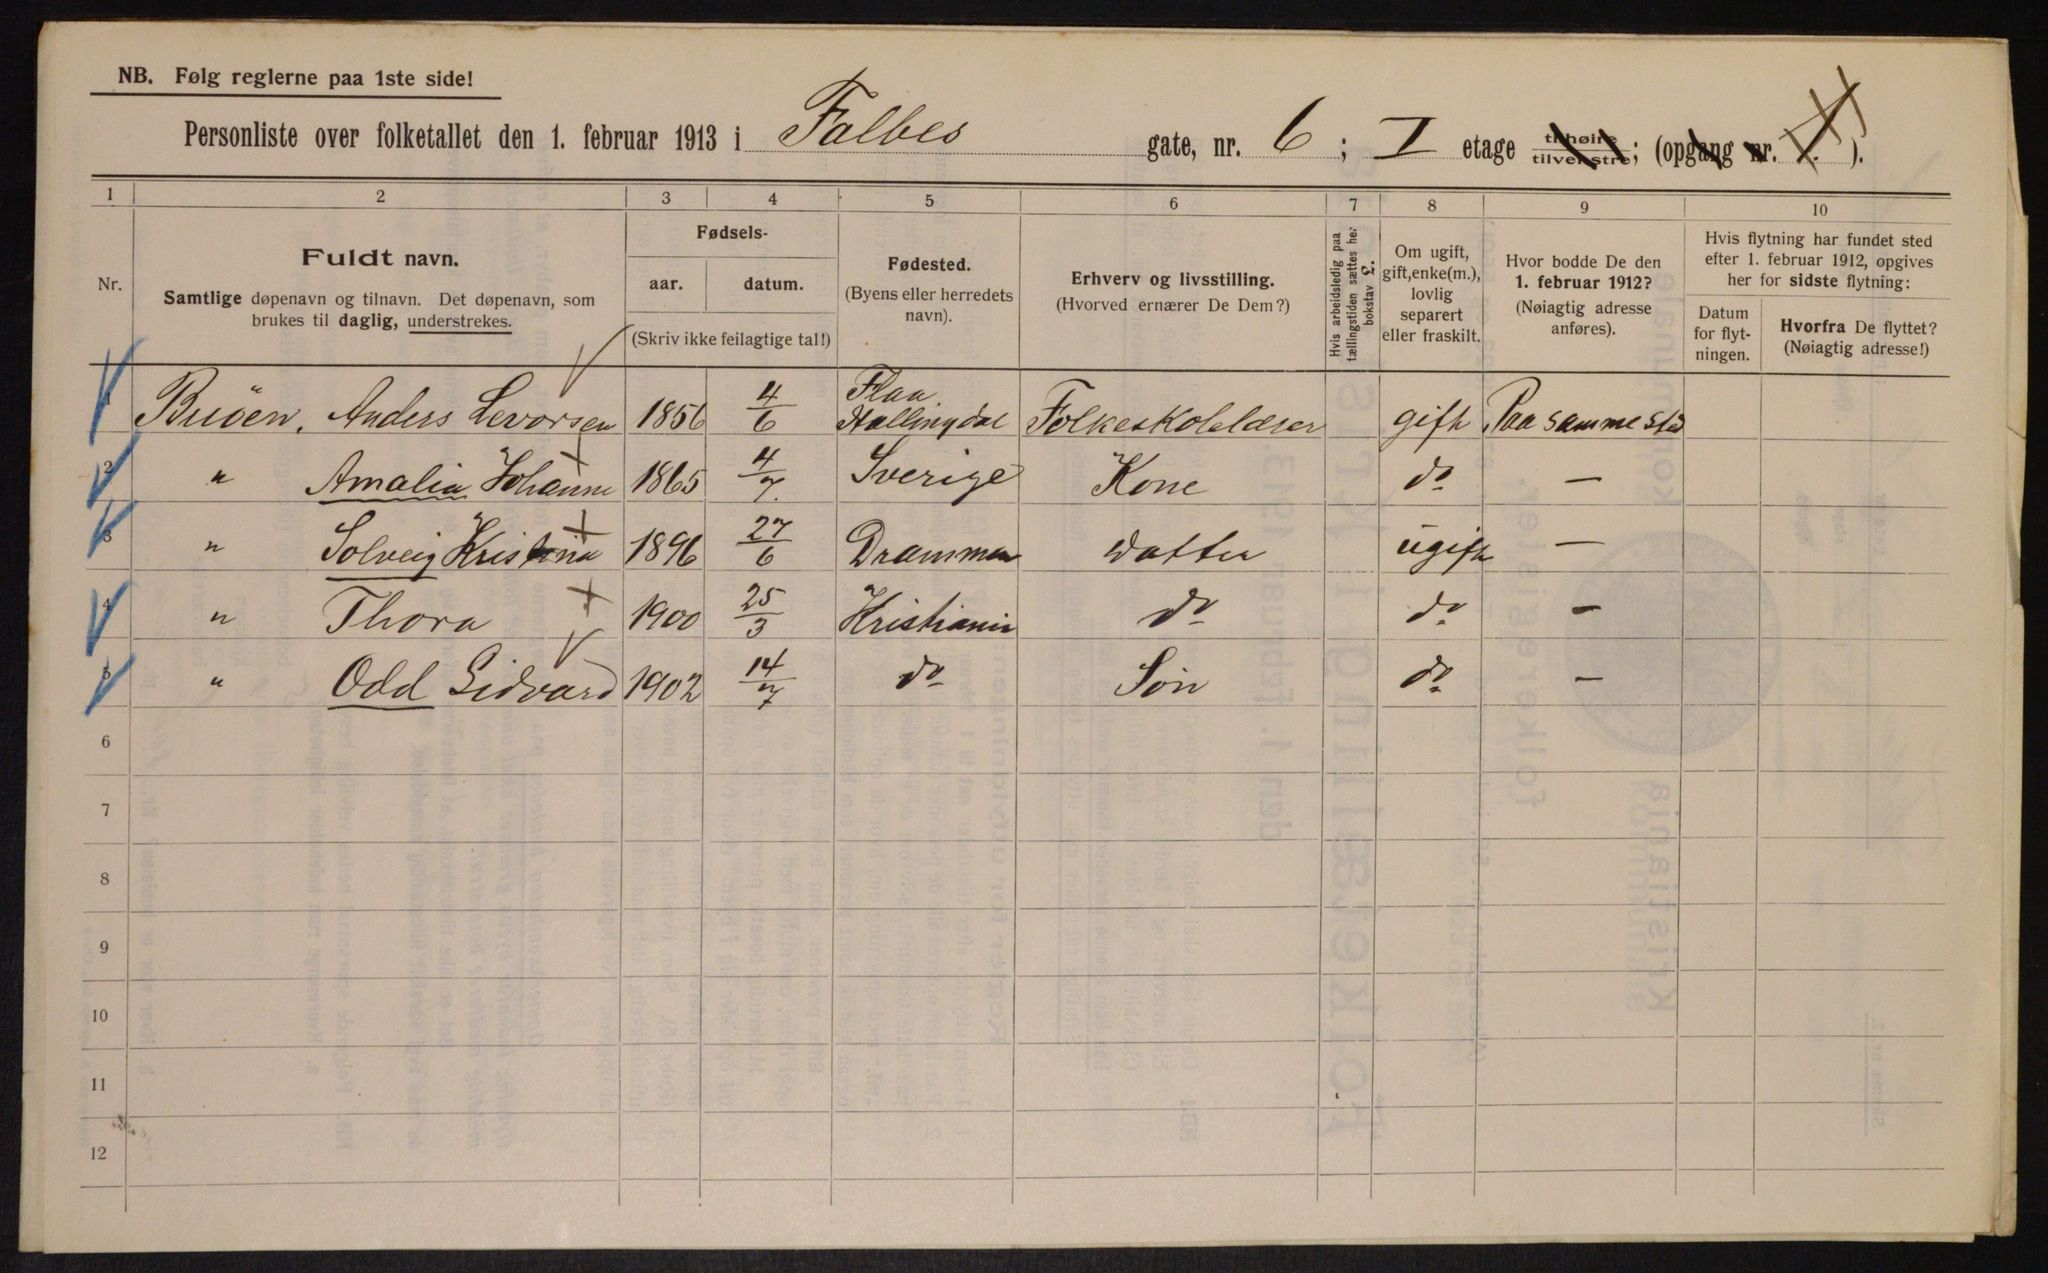 NB. Følg reglerne paa 1ste side!
Personliste over folketallet den 1. februar 1913 i Falbes gate, nr. 6 ; I etage tilhøire tilvenstre; (opgang nr. ).
1 2 3 4 5 6 7 8 9 10
Nr.
Fuldt navn.
Samtlige døpenavn og tilnavn. Det døpenavn, som
brukes til daglig, understrekes.
Fødsels-
aar. datum.
(Skriv ikke feilagtige tal!)
Fødested.
(Byens eller herredets
navn).
Erhverv og livsstilling.
(Hvorved ernærer De Dem?)
Hvis arbeidsledig paa
tællingstiden sættes her
bokstav L.
Om ugift,
gift, enke(m.),
lovlig
separert
eller fraskilt.
Hvor bodde De den
1. februar 1912?
(Nøiagtig adresse
anføres).
Hvis flytning har fundet sted
efter 1. februar 1912, opgives
her for sidste flytning:
Datum
for flyt-
ningen.
Hvorfra De flyttet?
(Nøiagtig adresse!)
1 Buöen, Anders Levorsen 1856 4/6 Flaa Hallingdal Folkeskolelærer gift Paa samme sted
2 " Amalia Johanne 1865 4/7. Sverige Kone do —
3 " Solveig Kristina 1896 27/6 Drammen datter ugift —
4 " Thora 1900 25/3 Kristiania do do —
5 " Odd Sidvard 1902 14/7 do Søn do —
6
7
8
9
10
11
12